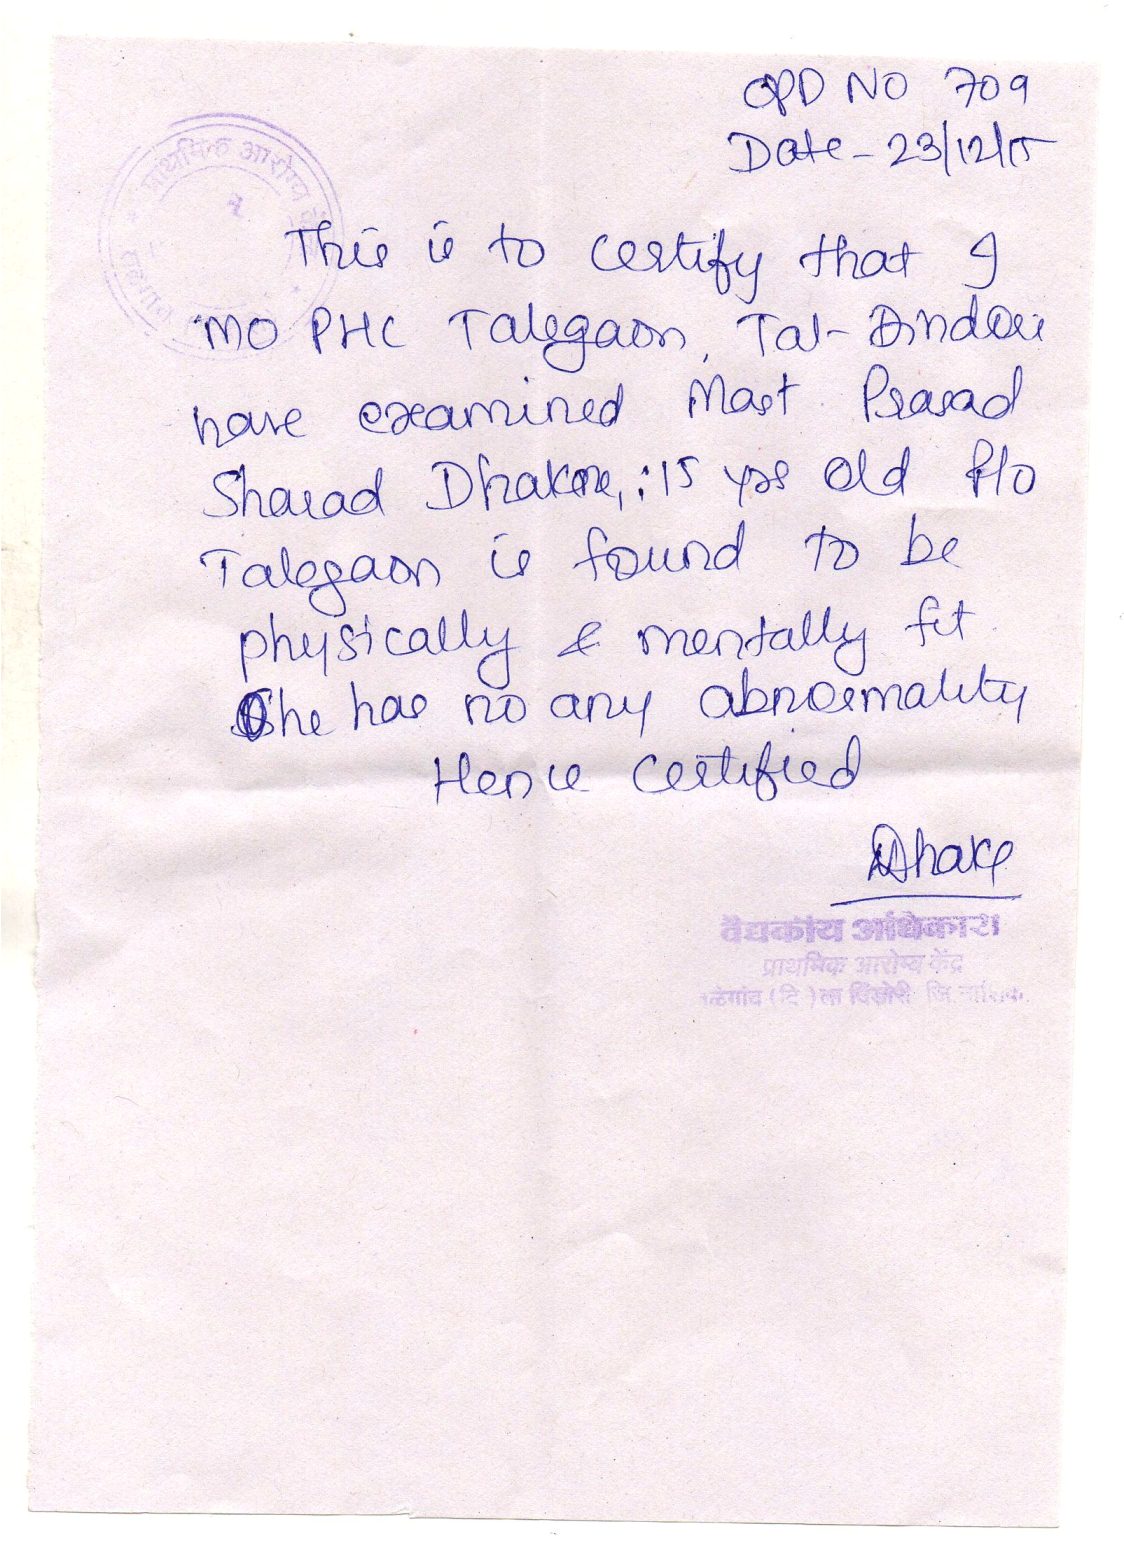 OPD NO 709
Date - 23/12/15
प्राथमिक आरोग्य
This is to certify that I
MO PHC Talegaon, Tal- Dindori
have examined Mast Prasad
Sharad Dhakne, 15 yrs old P/o
Talegaon is found to be
physically & mentally fit.
he has no any abnormality
Hence Certified
Dhake
वैद्यकीय अधिकारी
प्राथमिक आरोग्य केंद्र
तळेगांव (दि) ता दिंडोरी जि.नाशिक